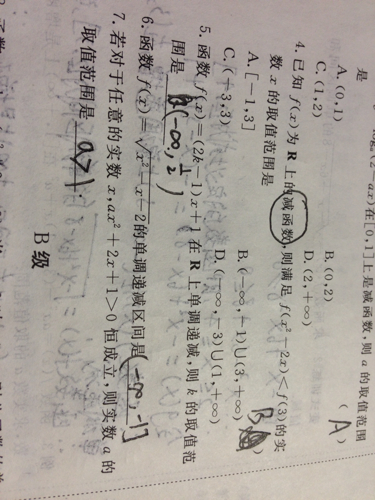 (2-ax)在[0,1]上是减函数,则 a 的取值范围
是 ( A )
A. (0,1) B. (0,2)
C. (1,2) D. (2,+∞)
4. 已知 f(x)为 R 上的减函数,则满足 f(x²-2x)<f(3)的实
数 x 的取值范围是 B )
A. [-1,3] B. (-∞,-1)∪(3,+∞)
C. (-3,3) D. (-∞,-3)∪(1,+∞)
5. 函数 f(x)=(2k-1)x+1 在 R 上单调递减,则 k 的取值范
围是 (-∞,1/2)
6. 函数 f(x)=√x²-x-2的单调递减区间是 (-∞,-1]
7. 若对于任意的实数 x,ax²+2x-1>0 恒成立,则实数 a 的
取值范围是 a>1.
B 级